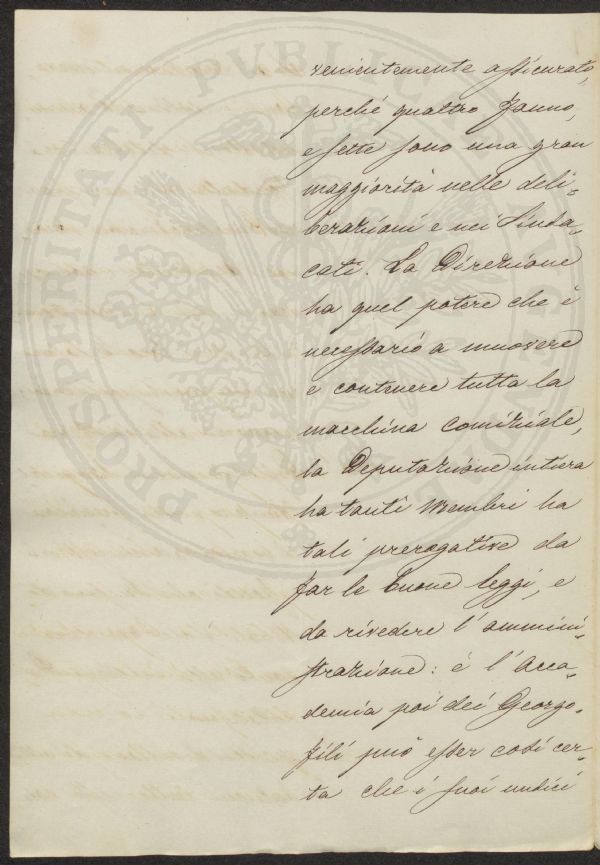 venientemente assicurato,
perché quattro fanno,
e sette sono una gran
maggiorità nelle deli=
berazioni e nei Sinda=
cati. La Direzione
ha quel potere che è
necessario a muovere
e contenere tutta la
macchina comiziale,
la Deputazione intiera
ha tanti Membri ha
tali prerogative da
far le buone leggi, e
da rivedere l'ammini=
strazione: è l'Acca=
demia poi dei Georgo=
fili può esser così cer=
ta che i suoi undici
PROSPERITATI PVBLICAE AVGENDAE